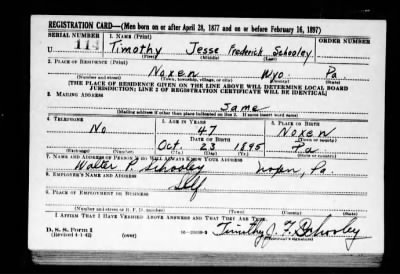 REGISTRATION CARD—(Men born on or after April 28, 1877 and on or before February 16, 1897)
SERIAL NUMBER 1. NAME (Print) ORDER NUMBER
U 114 Timothy Jesse Frederick Schooley
(First) (Middle) (Last)
2. PLACE OF RESIDENCE (Print)
Noxen Wyo. Pa.
(Number and street) (Town, township, village, or city) (County) (State)
[THE PLACE OF RESIDENCE GIVEN ON THE LINE ABOVE WILL DETERMINE LOCAL BOARD
JURISDICTION; LINE 2 OF REGISTRATION CERTIFICATE WILL BE IDENTICAL]
3. MAILING ADDRESS
Same
[Mailing address if other than place indicated on line 2. If same insert word same]
4. TELEPHONE 5. AGE IN YEARS 6. PLACE OF BIRTH
No 47 Noxen
DATE OF BIRTH (Town or county)
Oct. 23 1895 Pa
(Exchange) (Number) (Mo.) (Day) (Yr.) (State or country)
7. NAME AND ADDRESS OF PERSON WHO WILL ALWAYS KNOW YOUR ADDRESS
Walter P. Schooley Noxen, Pa.
8. EMPLOYER'S NAME AND ADDRESS
Self
9. PLACE OF EMPLOYMENT OR BUSINESS
(Number and street or R. F. D. number) (Town) (County) (State)
I AFFIRM THAT I HAVE VERIFIED ABOVE ANSWERS AND THAT THEY ARE TRUE.
D. S. S. Form 1
(Revised 4-1-42) (over) Timothy J. F. Schooley
(Registrant's signature)